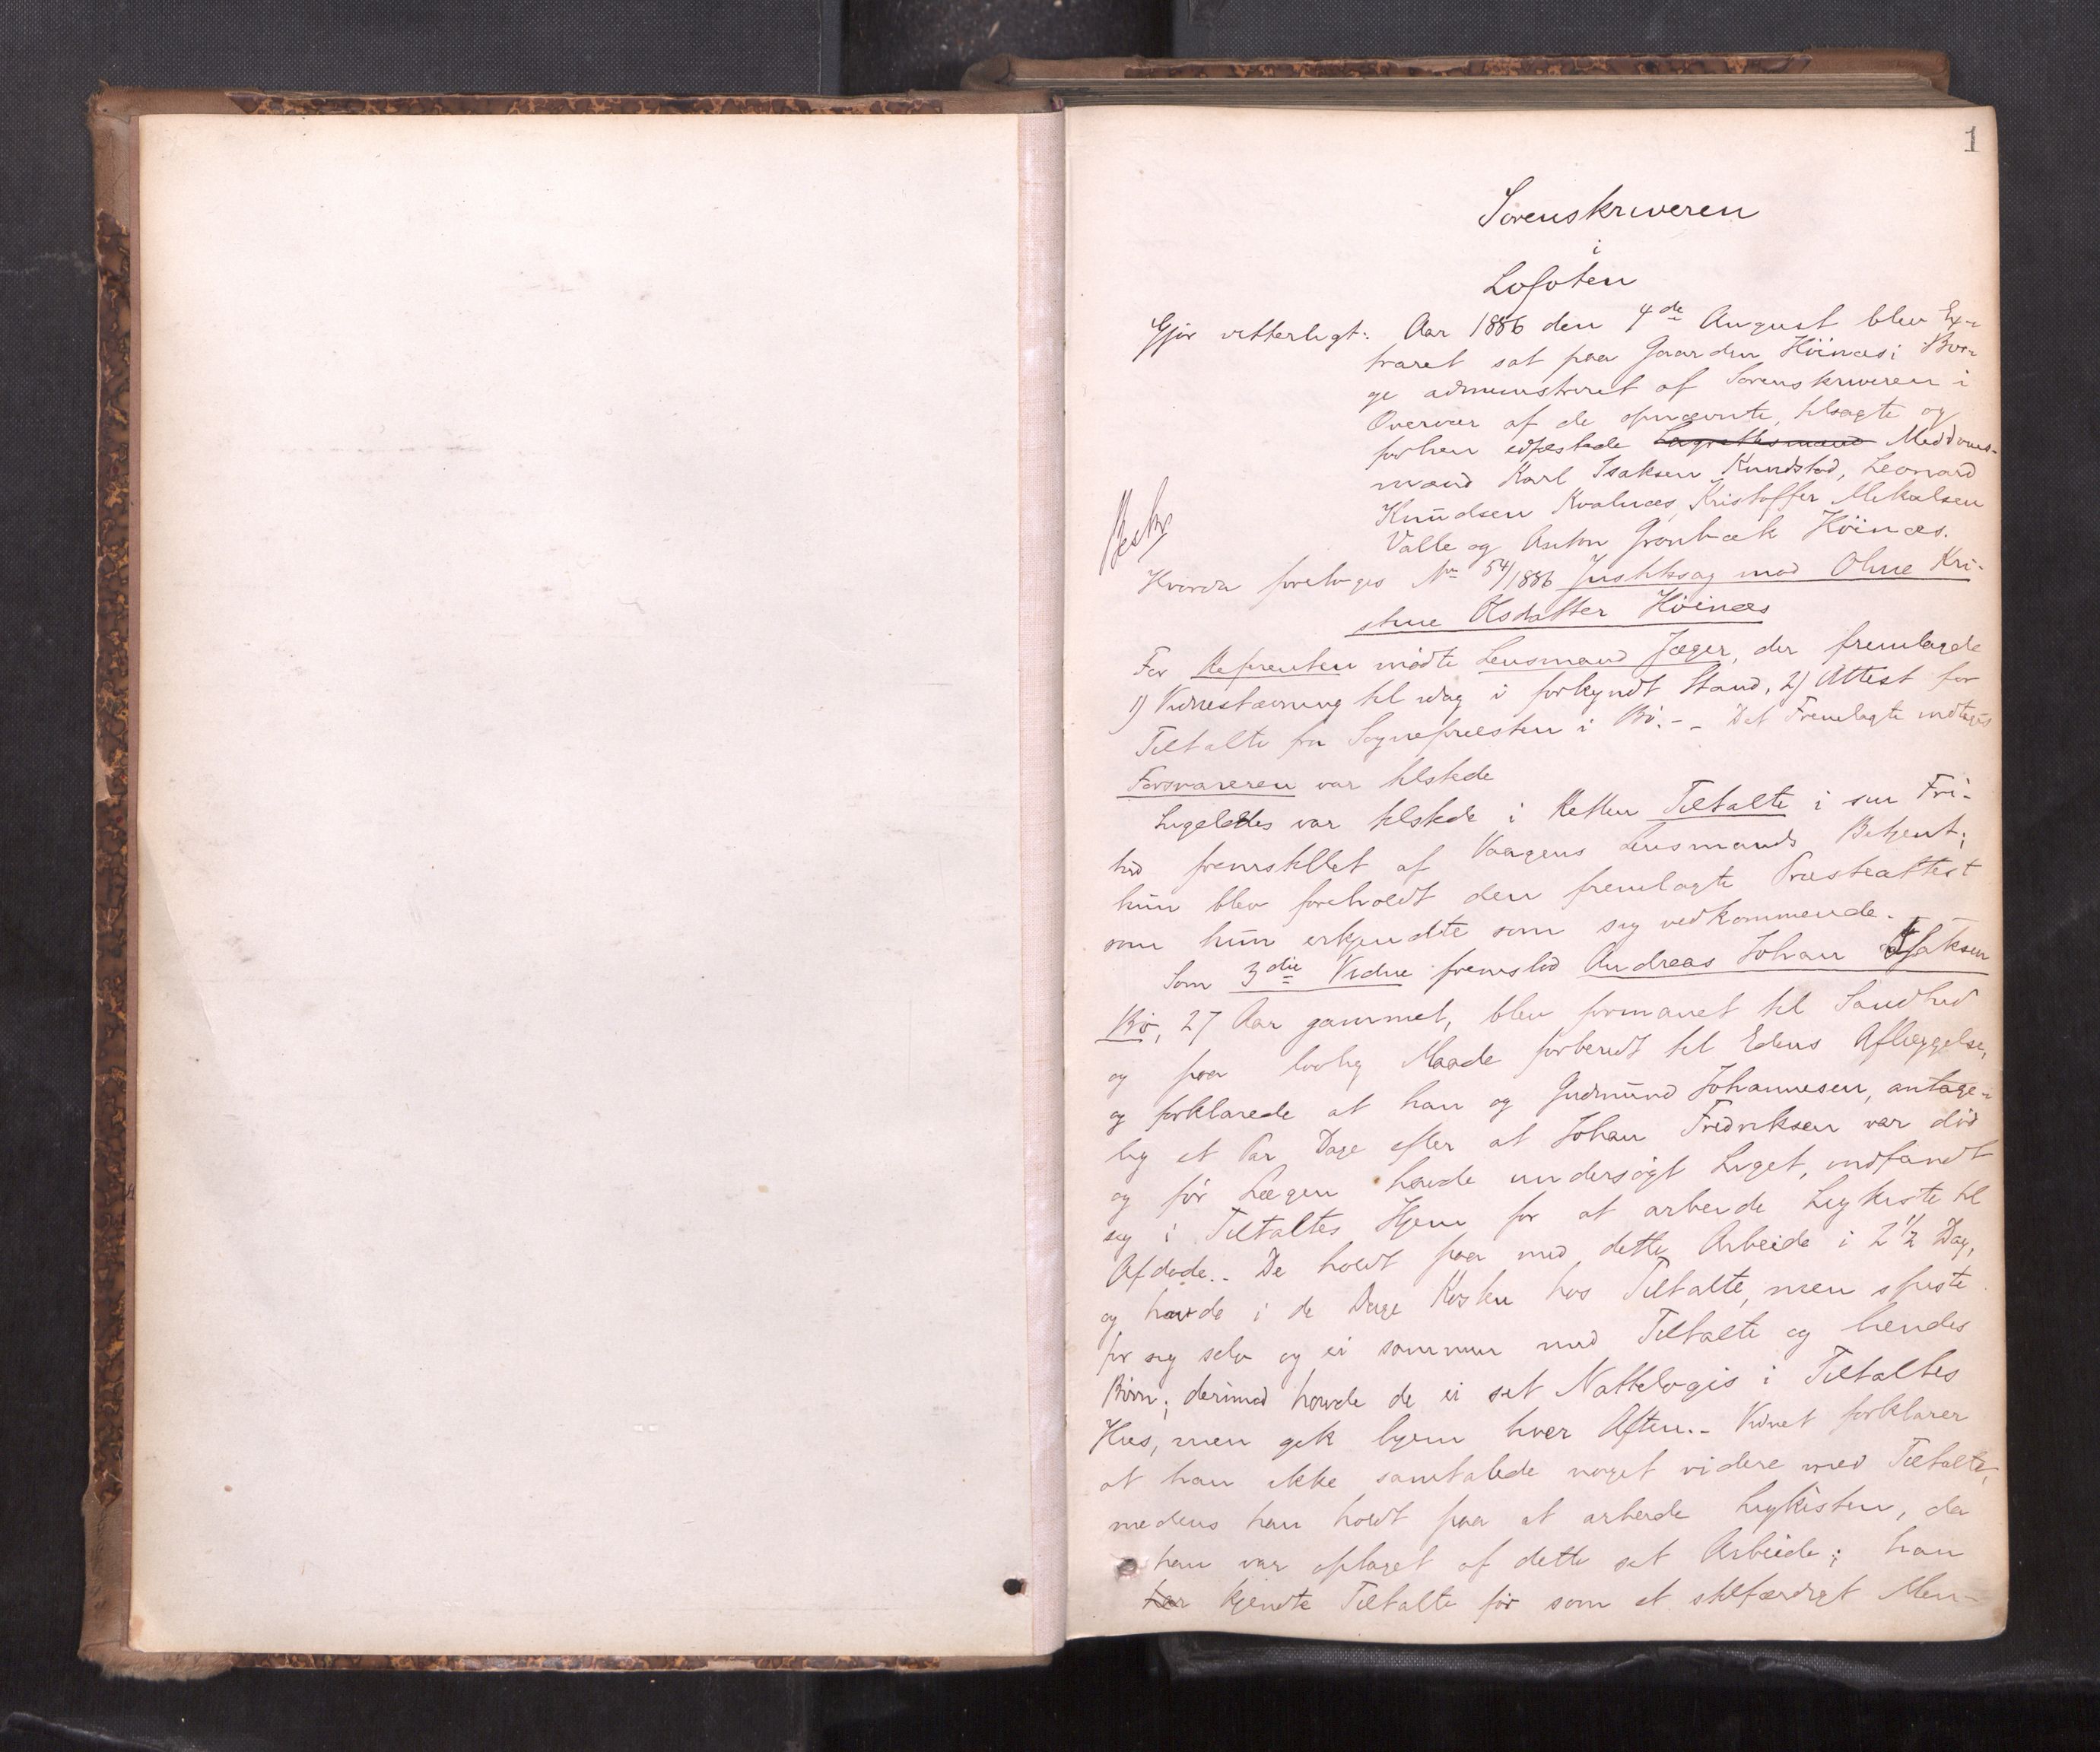 1
Sorenskriveren
i
Lofoten
Gjør vitterligt: Aar 1886 den 4de August blev Ex-
traret sat paa Gaarden Höinæs i Bor-
ge administreret af Sorenskriveren i
Overvær af de opnævnte, tilsagte og
forhen edfæstede Lagrettesmænd Meddoms-
mænd Karl Isaksen Kundstad, Leonard
Knudsen Kvalnæs, Kristoffer Mekalsen
Valle og Anton Grønbæk Höinæs.
Beskr
Hvorda foretoges No 54/1886 Justitssag mod Oline Kri-
stine Olsdatter Höinæs
For Aktor mödte Lensmand Jæger, der fremlagde
1) Vidnestævning til idag i forkyndt Stand, 2) Attest for
Tiltalte fra Sognepræsten i Bö. - Det Fremlagte indtages
Forsvareren var tilstede
Ligeledes var tilstede i Retten Tiltalte i sin Fri-
hed fremstillet af Vaagens Lensmands Betjent;
hun blev foreholdt den fremlagte Præsteattest
som hun erkjendte som sig vedkommende.
Som 3die Vidne fremstod Andreas Johan Isaksen
Bö, 27 Aar gammel, blev formanet til Sandhed
og paa lovlig Maade forberedt til Edens Aflæggelse,
og forklarede at han og Gudmund Johannesen, antage-
lig et Par Dage efter at Johan Fredriksen var död
og för Lægen havde undersögt Liget, indfandt
sig i Tiltaltes Hjem for at arbeide Ligkiste til
Afdöde. - De holdt paa med dette Arbeide i 2 1/2 Dag,
og havde i de Dage Kosten hos Tiltalte, men spiste
for sig selv og ei sammen med Tiltalte og hendes
Börn; derimod havde de ei sit Nattelogis i Tiltaltes
Hus, men gik hjem hver Aften. - Vidnet forklarer
at han ikke samtalede noget videre med Tiltalte,
medens han holdt paa at arbeide Ligkisten, da
han var optaget af dette sit Arbeide; han
har kjendte Tiltalte för som et stilfærdigt Men-